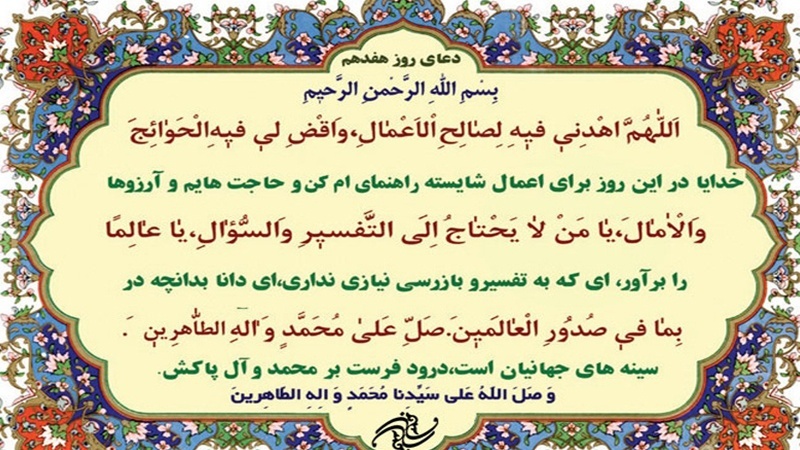 دعای روز هفدهم
بِسْمِ اللهِ الرَّحْمنِ الرَّحیمِ
اَللّٰهُمَّ اهْدِنی فیهِ لِصٰالِحِ الْاَعْمٰالِ،وَاقْضِ لی فیهِ الْحَوٰائِجَ
خدایا در این روز برای اعمال شایسته راهنمای ام کن و حاجت هایم و آرزوها
وَالْاٰمٰالَ،یٰا مَنْ لاٰ یَحْتٰاجُ اِلَی التَّفْسیرِ وَالسُّؤٰالِ،یٰا عٰالِمًا
را برآور، ای که به تفسیرو بازرسی نیازی نداری،ای دانا بدانچه در
بِمٰا فی صُدُورِ الْعٰالَمینَ.صَلِّ عَلیٰ مُحَمَّدٍ وَ اٰلِهِ الطّٰاهِرینَ .
سینه های جهانیان است،درود فرست بر محمد و آل پاکش.
وَ صَلَ اللهُ عَلی سَیِّدِنا مُحَمَدٍ وَ الِهِ الطّاهِرینَ